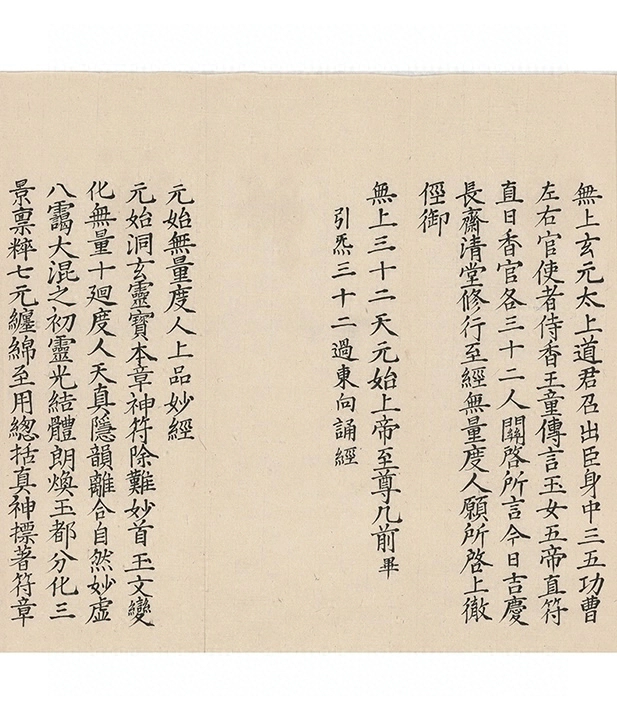 無上玄元太上道君召出臣身中三五功曹
左右官使者侍香玉童傳言玉女五帝直符
直日香官各三十二人關啓所言今日吉慶
長齋清堂修行至經無量度人願所啓上徹
徑御
無上三十二天元始上帝至尊几前畢
引炁三十二過東向誦經
元始無量度人上品妙經
元始洞玄靈寶本章神符除難妙首玉文變
化無量十廻度人天真隱韻離合自然妙虛
八靄大混之初靈光結體朗煥玉都分化三
景稟粹七元纏綿至用緫括真神摽著符章